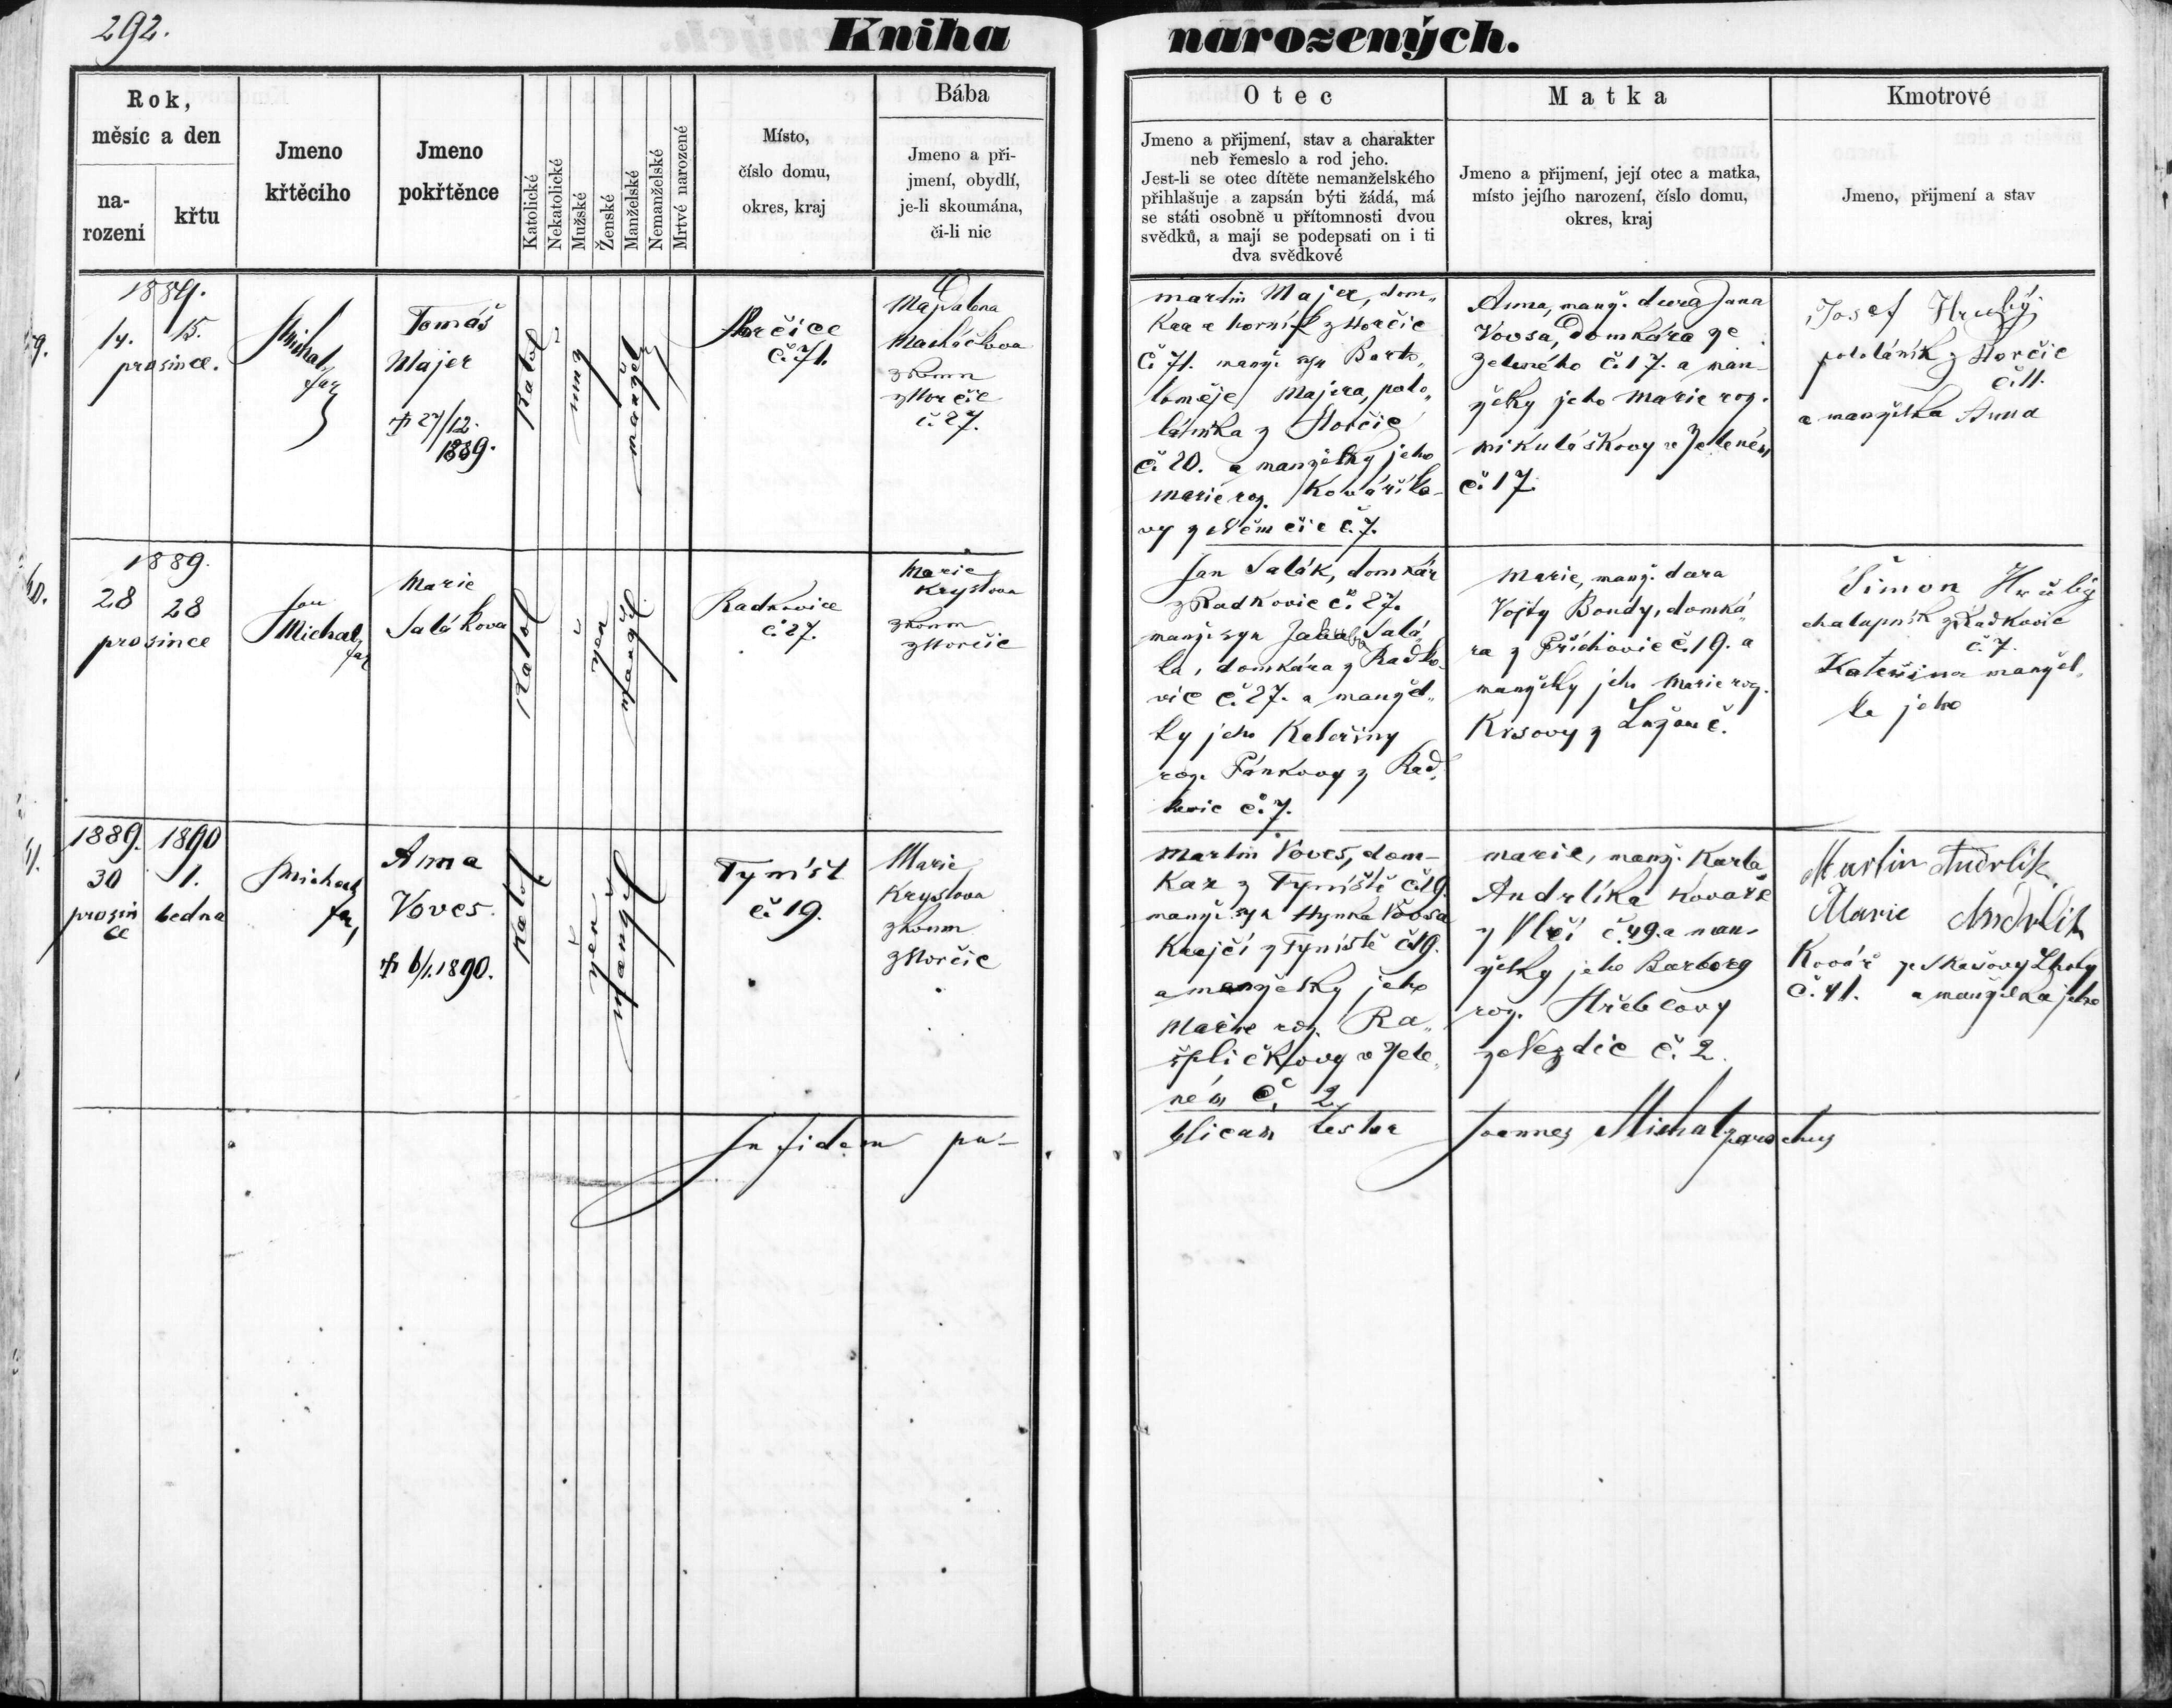 292.
Kniha narozených.
Rok,
měsíc a den
na-
rození
křtu
Jmeno
křtěcího
Jmeno
pokřtěnce
Katolické
Nekatolické
Mužské
Ženské
Manželské
Nemanželské
Mrtvé narozené
Místo,
číslo domu,
okres, kraj
Bába
Jmeno a při-
jmení, obydlí,
je-li skoumána,
či-li nic
Otec
Jmeno a přijmení, stav a charakter
neb řemeslo a rod jeho.
Jest-li se otec dítěte nemanželského
přihlašuje a zapsán býti žádá, má
se státi osobně u přítomnosti dvou
svědků, a mají se podepsati on i ti
dva svědkové
Matka
Jmeno a přijmení, její otec a matka,
místo jejího narození, číslo domu,
okres, kraj
Kmotrové
Jmeno, přijmení a stav
9.
1889.
14. 15.
prosince.
Michal
far
Tomáš
Majer
27/12.
1889.
Katol
muž
manžel
Horčice
č. 71.
Magdalena
zkoum
z Horčic
č. 27.
Martin Majer, dom„
kář a horník z Horčic
č 71. manž. syn Barto„
loměje Majera, polo„
láníka z Horčic
č. 20. a manželky jeho
Marie roz. Kováříko-
vy z Němčic č. 7.
Anna, manž. dcera Jana
Vovsa, domkáře ze
Zeleného č. 17. a man-
želky jeho Marie roz.
Mikuláškovy v Zeleném
č. 17.
Josef Hrubý,
pololáník z Horčic
č. 11.
a manželka Anna
0.
1889.
28 28
prosince
Jan
Michal
far
Marie
Saláková
Katol
žen
manžel
Radkovice
č. 27.
Marie
Kryslova
zkoum
z Horčic
Jan Salák, domkář
z Radkovic č. 27.
manž. syn Salá„
ka, domkáře z Radko-
vic č. 27. a manžel„
ky jeho Kateřiny
roz. Pánkovy z Rad„
kovic č. 7.
Marie, manž. dcera
Vojty Bondy, domká„
ře z Příchovic č. 19. a
manželky jeho Marie roz.
Krsovy z Lužan č.
Šimon Hrubý
chalupník z Radkovic
č. 7.
Kateřina manžel„
ka jeho
1.
1889. 1890
30 1.
prosin
ce
ledna
Michal
far,
Anna
Voves.
6/1. 1890.
Katol.
žen
manžel
Týništ
č. 19.
Marie
Kryslova
zkoum
z Horčic
Martin Voves, dom-
kář z Týniště č. 19.
manž. syn Hynka Vovsa
krejčí z Týniště č. 19.
a manželky jeho
Marie roz. Ra„
špličkovy v Zele„
ném č. 2.
Marie, manž. Karla
Andrlíka kováře
z Vlčí č. 49. a man-
želky jeho Barbory
roz. Hřebcovy
z Nezdic č. 2.
Martin Andrlík
Marie Andrlík
Kovář ze Skašovy Lhoty
č. 41. a manželka jeho
In fidem pu-
blicam testor Joannes Michal, parochus